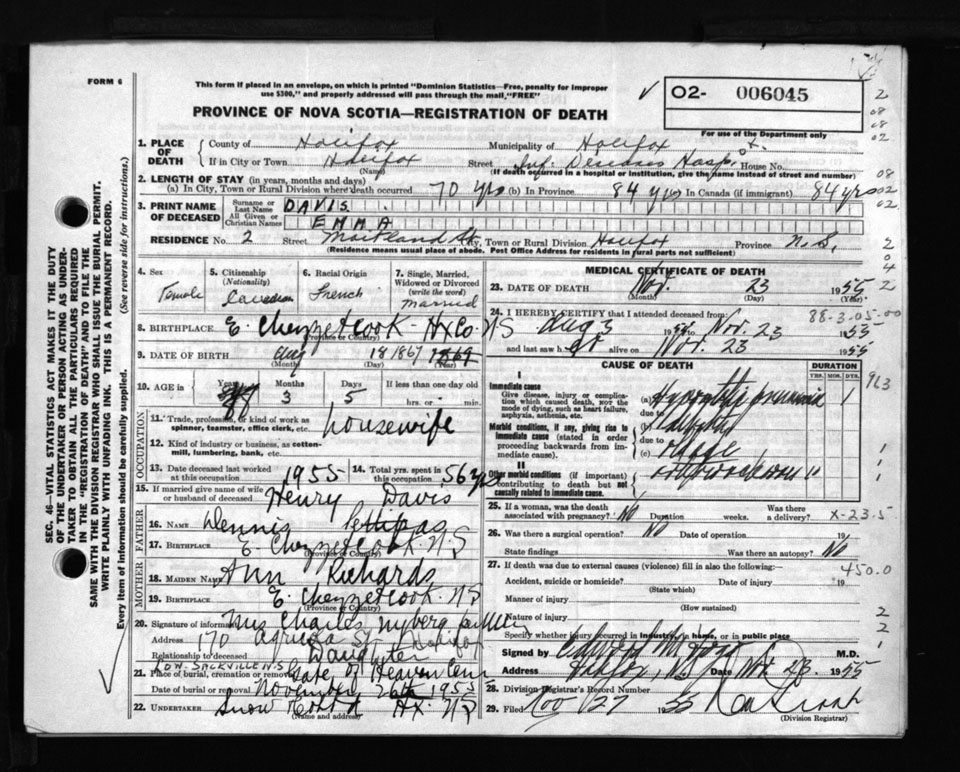 FORM 6
This form if placed in an envelope, on which is printed "Dominion Statistics—Free, penalty for improper
use $300," and properly addressed will pass through the mail, "FREE"
PROVINCE OF NOVA SCOTIA—REGISTRATION OF DEATH
O2- 006045
For use of the Department only
SEC. 46—VITAL STATISTICS ACT MAKES IT THE DUTY
OF THE UNDERTAKER OR PERSON ACTING AS UNDER-
TAKER TO OBTAIN ALL THE PARTICULARS REQUIRED
IN THE "REGISTRATION OF DEATH" AND TO FILE THE
SAME WITH THE DIVISION REGISTRAR WHO SHALL ISSUE THE BURIAL PERMIT.
WRITE PLAINLY WITH UNFADING INK. THIS IS A PERMANENT RECORD.
Every item of information should be carefully supplied. (See reverse side for instructions.)
1. PLACE OF DEATH
County of Halifax Municipality of Halifax
If in City or Town Halifax Street Inf. Diseases Hosp. House No.
(Name) (If death occurred in a hospital or institution, give the name instead of street and number)
2. LENGTH OF STAY (in years, months and days)
(a) In City, Town or Rural Division where death occurred 70 yrs (b) In Province 84 yrs (c) In Canada (if immigrant) 84 yrs
3. PRINT NAME OF DECEASED
Surname or Last Name DAVIS
All Given or Christian Names EMMA
RESIDENCE No. 2 Street Maitland St. City, Town or Rural Division Halifax Province N.S.
(Residence means usual place of abode. Post Office Address for residents in rural parts not sufficient)
4. Sex Female
5. Citizenship (Nationality) Canadian
6. Racial Origin French
7. Single, Married, Widowed or Divorced (write the word) Married
8. BIRTHPLACE E. Chezzetcook - Hx Co. N S
(Province or Country)
9. DATE OF BIRTH Aug 18 1867 1869
(Month) (Day) (Year)
10. AGE in Years Months 3 Days 5 If less than one day old hrs. or min.
OCCUPATION
11. Trade, profession, or kind of work as
spinner, teamster, office clerk, etc. housewife
12. Kind of industry or business, as cotton-
mill, lumbering, bank, etc.
13. Date deceased last worked at this occupation 1955 14. Total yrs. spent in this occupation 56 yrs
15. If married give name of wife or husband of deceased Henry Davis
FATHER
16. NAME Dennis Pettipas
17. BIRTHPLACE E. Chezzetcook - N S
(Province or Country)
MOTHER
18. MAIDEN NAME Ann Richards
19. BIRTHPLACE E. Chezzetcook - N S
(Province or Country)
20. Signature of informant Mrs Charles Nyberg
Address 170 Agricola St. Halifax
Relationship to deceased Daughter
LOW. SACKVILLE N.S
21. Place of burial, cremation or removal Gate of Heaven Cem
Date of burial or removal November 26th 1955
22. UNDERTAKER Snow Co Ltd Hx. N S
(Name and address)
MEDICAL CERTIFICATE OF DEATH
23. DATE OF DEATH Nov. 23 1955
(Month) (Day) (Year)
24. I HEREBY CERTIFY that I attended deceased from:
88-3-05-00
Aug 3 1954 to Nov. 23 1955
and last saw her alive on Nov. 23 1955
CAUSE OF DEATH DURATION
YRS. MOS. DYS.
963
I
Immediate cause
Give disease, injury or complica-
tion which caused death, not the
mode of dying, such as heart failure,
asphyxia, asthenia, etc.
(a) Hypostatic pneumonia 1
due to
Morbid conditions, if any, giving rise to
immediate cause (stated in order
proceeding backwards from im-
mediate cause).
(b)
due to
(c)
II
Other morbid conditions (if important)
contributing to death but not
causally related to immediate cause.
25. If a woman, was the death associated with pregnancy? No Duration weeks. Was there a delivery?
X-23.5
26. Was there a surgical operation? No Date of operation 19
State findings Was there an autopsy? No
27. If death was due to external causes (violence) fill in also the following:—
450.0
Accident, suicide or homicide? Date of injury 19
(State which)
Manner of injury
(How sustained)
Nature of injury
Specify whether injury occurred in industry, in home, or in public place
Signed by M.D.
Address Halifax, N.S. Date Nov 23 1955
28. Division Registrar's Record Number
29. Filed Nov 27 1955
(Division Registrar)